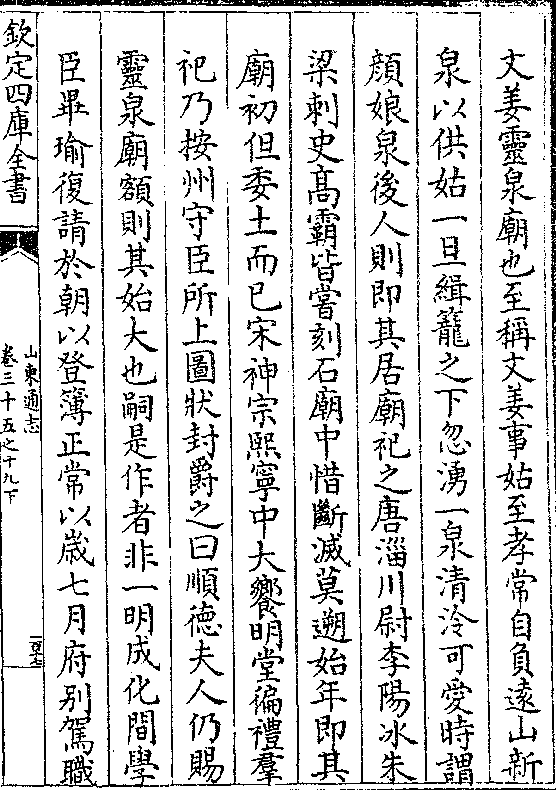 文姜靈泉廟也至稱文姜事姑至孝常自負逺山新
泉以供姑一旦緝籠之下忽湧一泉清泠可愛時謂
顔娘泉後人則即其居廟祀之唐淄川尉李陽冰朱
梁刺史髙霸皆嘗刻石廟中惜斷滅莫遡始年即其
廟初但委土而已宋神宗熙寧中大饗明堂徧禮羣
祀乃按州守臣所上圖狀封爵之曰順徳夫人仍賜
靈泉廟額則其始大也嗣是作者非一明成化間學
臣畢瑜復請於朝以登簿正常以歳七月府别駕職
欽定四庫全書
山東通志
卷三十五之十九下